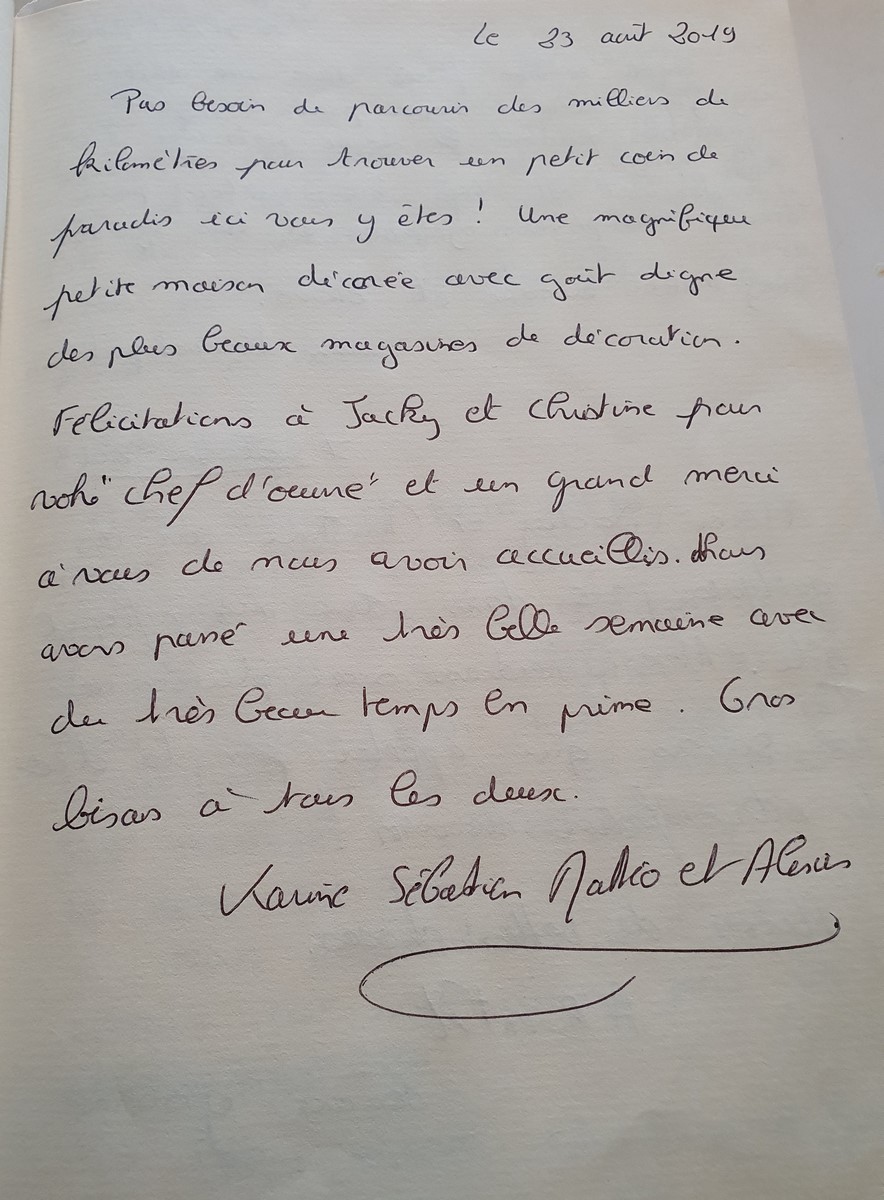 Le 23 août 2019
Pas besoin de parcourir des milliers de
kilomètres pour trouver un petit coin de
paradis ici vous y êtes ! Une magnifique
petite maison décorée avec goût digne
des plus beaux magasines de décoration.
Félicitations à Jacky et Christine pour
votre "chef d'oeuvre" et un grand merci
à vous de nous avoir accueillis. Nous
avons passé une très belle semaine avec
du très beau temps en prime. Gros
bisous à tous les deux.
Karine Sébastien Mattéo et Alexis